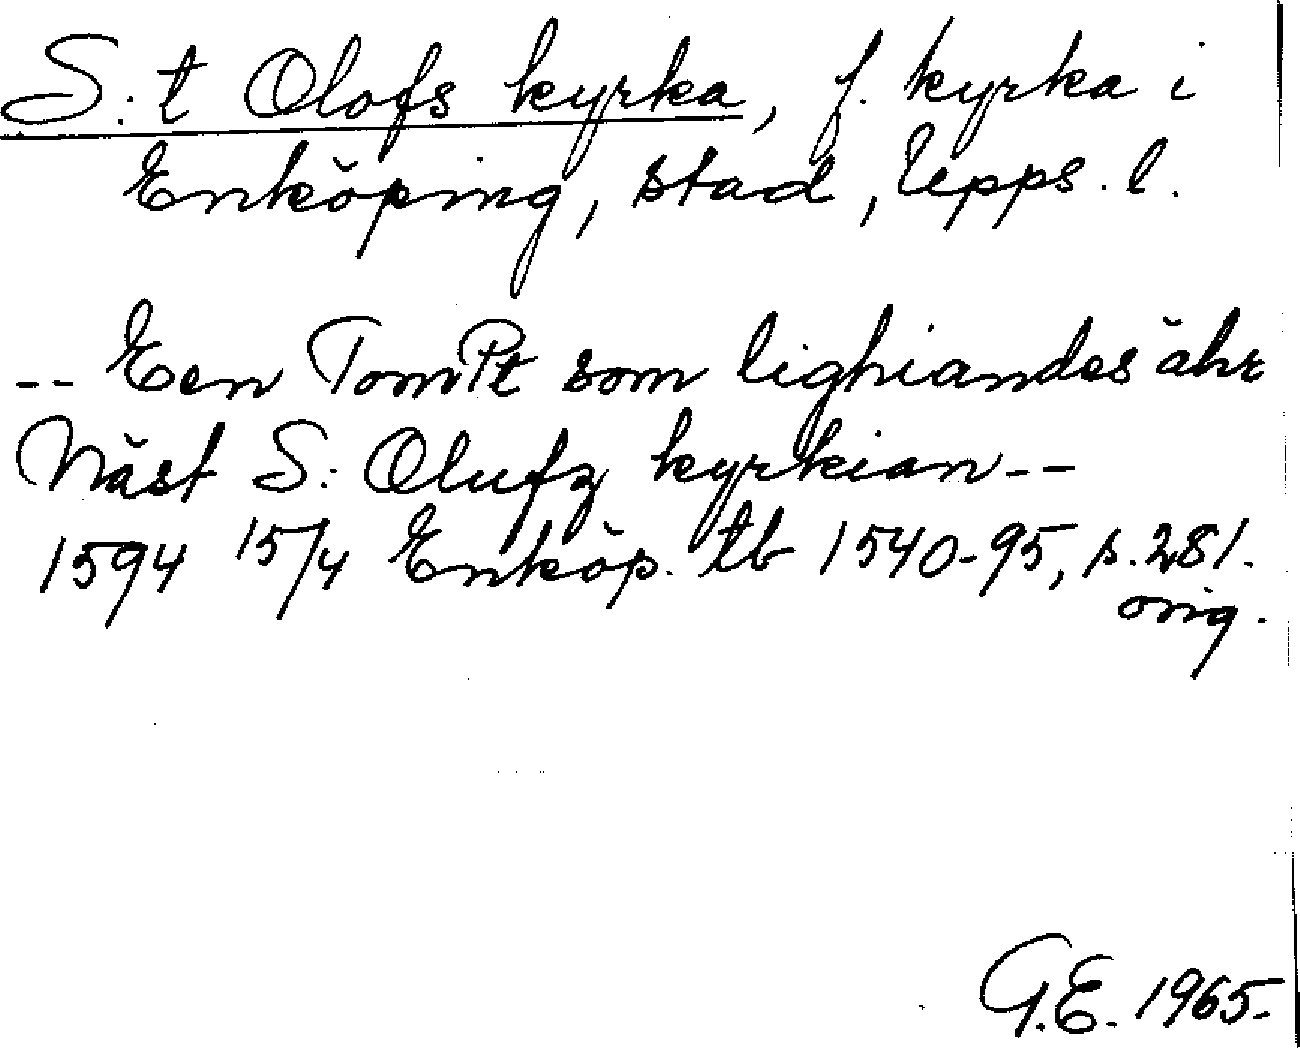 S:t Olofs kyrka, f. kyrka i
Enköping, stad, Upps. l.
-- Een TomPt som lighiandes ähr
Näst S: Olufz kyrkian --
1594 15/4 Enköp. tb 1540-95, s. 281.
orig.
G.E. 1965.